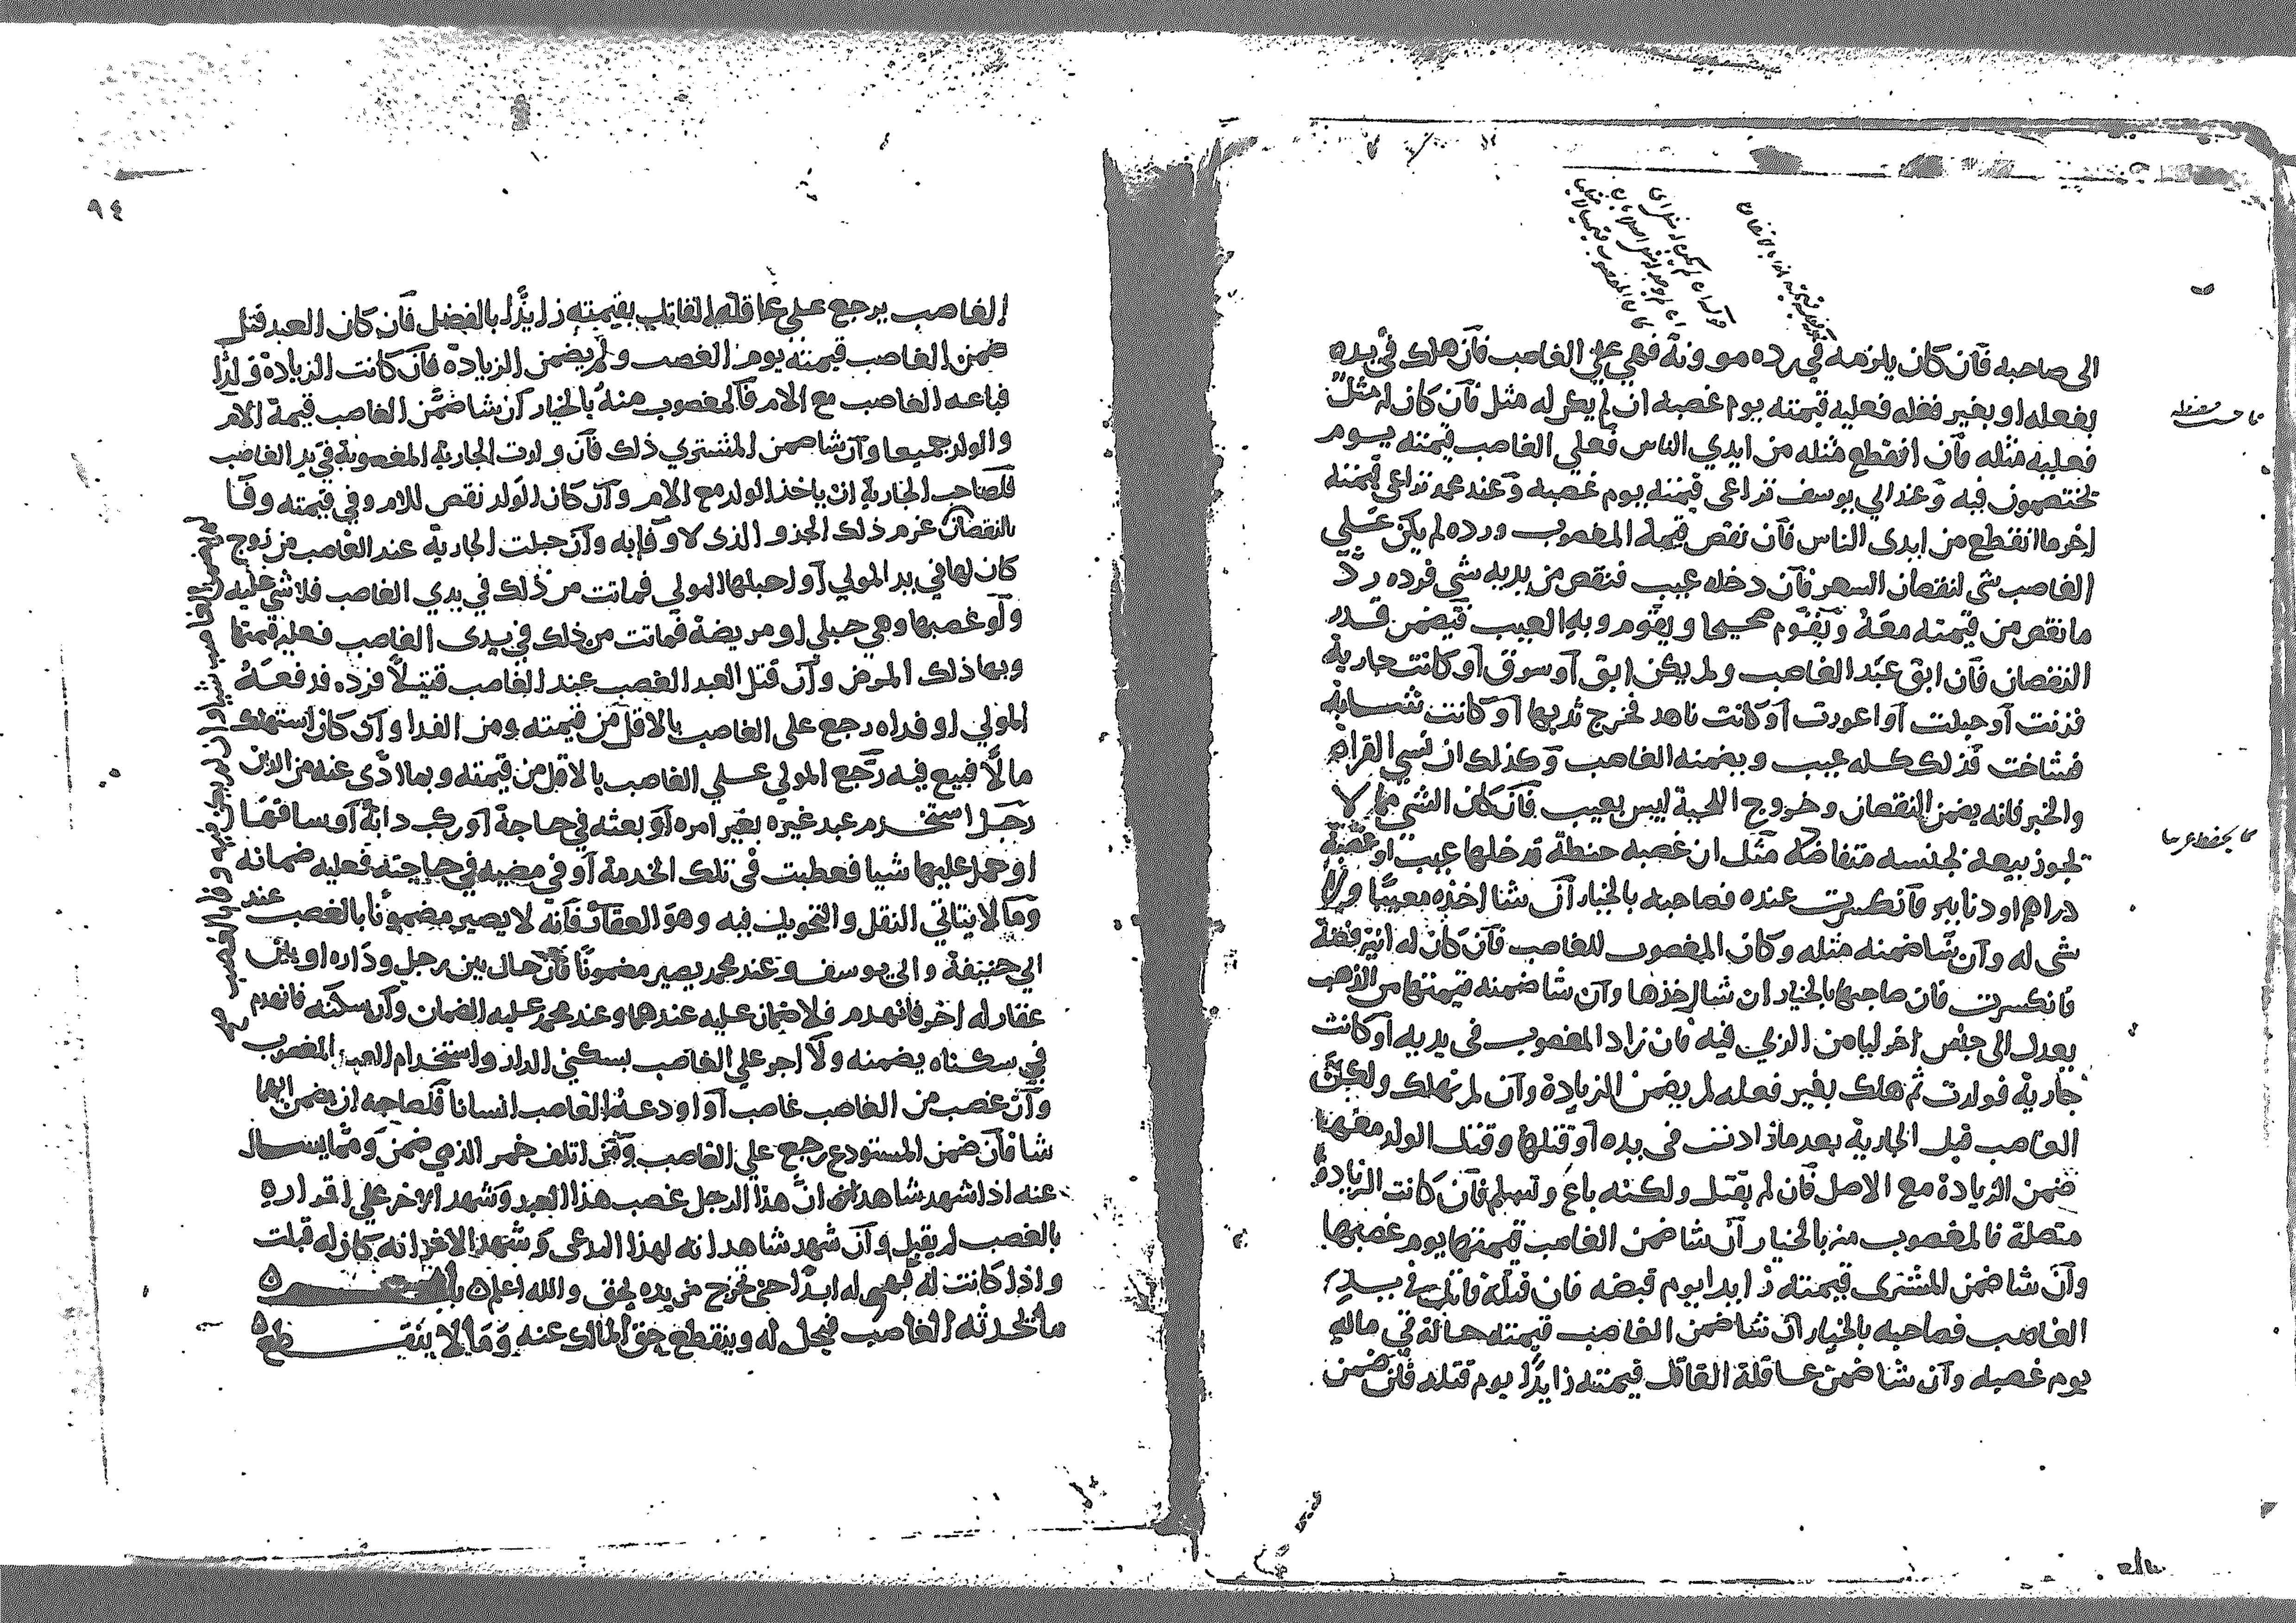 الى صاحبه فآن كان يلزمه في رده موونة فهي علي الغاصب فآن هلك في يده
بفعله او بغير فعله فعليه قيمته يوم غصبه ان لم يكن له مثل فآن كان له مثل
فعليه مثله فآن انقطع مثله من ايدي الناس فعلي الغاصب قيمته يوم
يختصمون فيه وعند ابي يوسف تراعى قيمته يوم غصبه وعند محمد تراعي قيمته
اخر ما انقطع من ايدى الناس فآن نقص قيمة المغصوب ورده لم يكن علي
الغاصب شى لنقصان السعر فآن دخله عيب فنقص من يديه شى فرده رد
ما نقص من قيمته معه ويقوم صحيحا ويقوم وبه العيب فيضمن قدر
النقصان فآن ابق عند الغاصب ولم يكن ابق آو سرق آو كانت جارية
فزنت آو حبلت آو اعورت آو كانت ناهد فخرج ثديها آو كانت شابة
فشاخت فذلك كله عيب ويضمنه الغاصب وكذلك ان نسي القران
والخبز فانه يضمن النقصان وخروج اللحية ليس بعيب فآن كان الشى مما لا
يجوز بيعه بجنسه متفاضلا مثل ان غصبه حنطة فدخلها عيب او غصبه
دراهم او دنانير فآنكسرت عنده فصاحبه بالخيار آن شا اخذه معيبا ولا
شى له وآن شا ضمنه مثله وكان المغصوب للغاصب فآن كان له انية فضة
فانكسرت فان صاحبها بالخيار ان شا اخذها وآن شا ضمنه قيمتها من الذهب
يعدل الى جنس اخر ليا من الذي فيه فان زاد المغصوب فى يديه آو كانت
جارية فولدت ثم هلك بغير فعله لم يضمن الزيادة وآن لم تهلك ولكن
الغاصب قتل الجارية بعد ما زادت فى يده آو قتلها وقتل الولد معها
ضمن الزيادة مع الاصل فآن لم يقتل ولكنه باع وتسلم فآن كانت الزيادة
متصلة فالمغصوب منه بالخيار آن شا ضمن الغاصب قيمتها يوم غصبها
وآن شا ضمن المشترى قيمته زايدا يوم قبضه فان قتله قاتل في يد
الغاصب فصاحبه بالخيار آن شا ضمن الغاصب قيمته حالة في ماله
يوم غصبه وآن شا ضمن عاقلة القاتل قيمته زايدا يوم قتله فآن ضمن
٩٤
الغاصب يرجع علي عاقلة القاتل بقيمته زايدا بالفضل فآن كان العبد قتل
ضمن الغاصب قيمته يوم الغصب ولم يضمن الزيادة فآن كانت الزيادة ولدا
فباعه الغاصب مع الام فآلمغصوب منه بالخيار آن شا ضمن الغاصب قيمة الام
والولد جميعا وآن شا ضمن المشتري ذلك فآن ولدت الجارية المغصوبة في يد الغاصب
فلصاحب الجارية ان ياخذ الولد مع الام وآن كان الولد نقص للام وفي قيمته وفا
بالنقصان غرم ذلك الجزو الذى لا وفا به وآن حبلت الجارية عند الغاصب من زوج
كان لها في يد المولي آو احبلها المولي فماتت من ذلك في يدي الغاصب فلا شى عليه
ولو غصبها وهي حبلي او مريضة فماتت من ذلك في يدى الغاصب فعليه قيمتها
وبها ذلك المرض وآن قتل العبد الغصب عند الغاصب قتيلا فرده فدفعه
المولي او فداه رجع على الغاصب بالاقل من قيمته ومن الفدا وآن كان استهلك
مالا فبيع فيه رجع المولي علي الغاصب بالاقل من قيمته وبما ادى عنه من الدين
رجل استخدم عبد غيره بغير امره آو بعثه في حاجة آو ركب دابة آو ساقها
او حمل عليها شيا فعطبت فى تلك الخدمة آو في مضيه في حاجته فعليه ضمانه
وما لا يتاتي النقل والتحويل فيه وهو العقار فآنه لا يصير مضمونا بالغصب عند
ابي حنيفة وابي يوسف وعند محمد يصير مضمونا فآن حال بين رجل وداره او بين
عقار له اخر فآنهدم فلا ضمان عليه عندهما وعند محمد عليه الضمان وآن سكنه فانهدم
في سكناه يضمنه ولا اجر علي الغاصب بسكني الدار واستخدام العبد المغصوب
وآن غصب من الغاصب غاصب آو اودعه الغاصب انسانا فلصاحبه ان يضمن ايهما
شا فآن ضمن المستودع رجع علي الغاصب ومن اتلف خمر الذمي ضمن ومما يسال
عنه اذا شهد شاهد ان هذا الرجل غصب هذا العبد وشهد الاخر علي اقراره
بالغصب لم يقبل وآن شهد شاهد انه لهذا المدعى وشهد الاخر انه كان له قبلت
واذا كانت له فهى له ابدا حتى تخرج من يده بحق والله اعلم
ما يحدثه الغاصب فيحل له وينقطع حق المالك عنه وما لا ينقطع